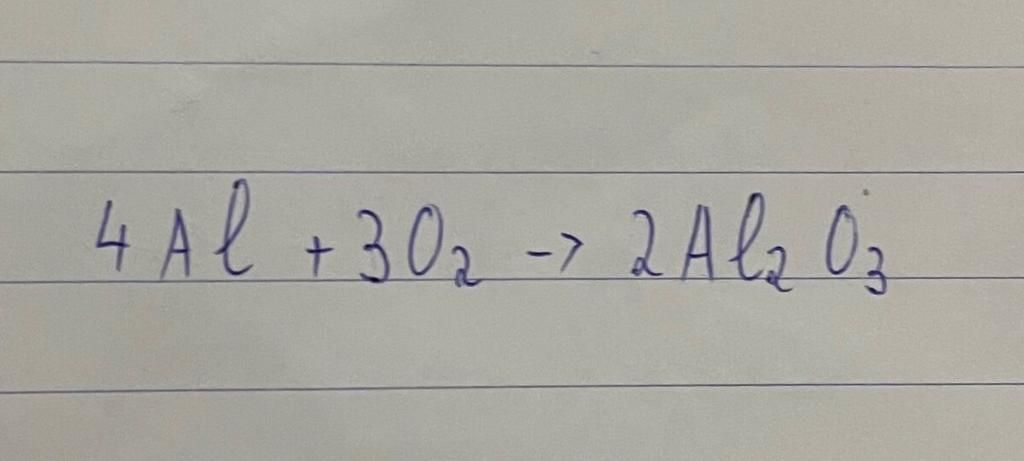 4Al + 3O₂ -> 2Al₂O₃